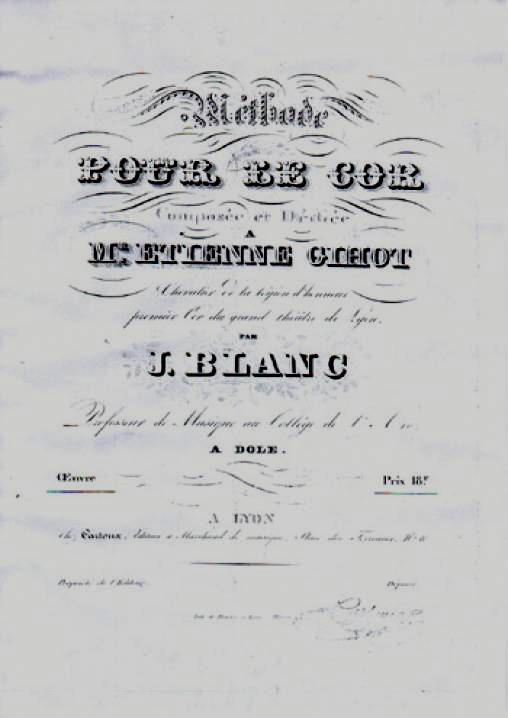 Méthode
POUR LE COR
Composée et Dédiée
A
Mr. ETIENNE GIHOT
Chevalier de la légion d'honneur
premier Cor du grand théâtre de Lyon.
PAR
J. BLANC
Professeur de Musique au Collège de l'Arc
A DOLE.
Œuvre Prix 18f
A LYON
Chez Cartoux, Editeur et Marchand de musique, Place des
Propriété de l'Editeur Déposé